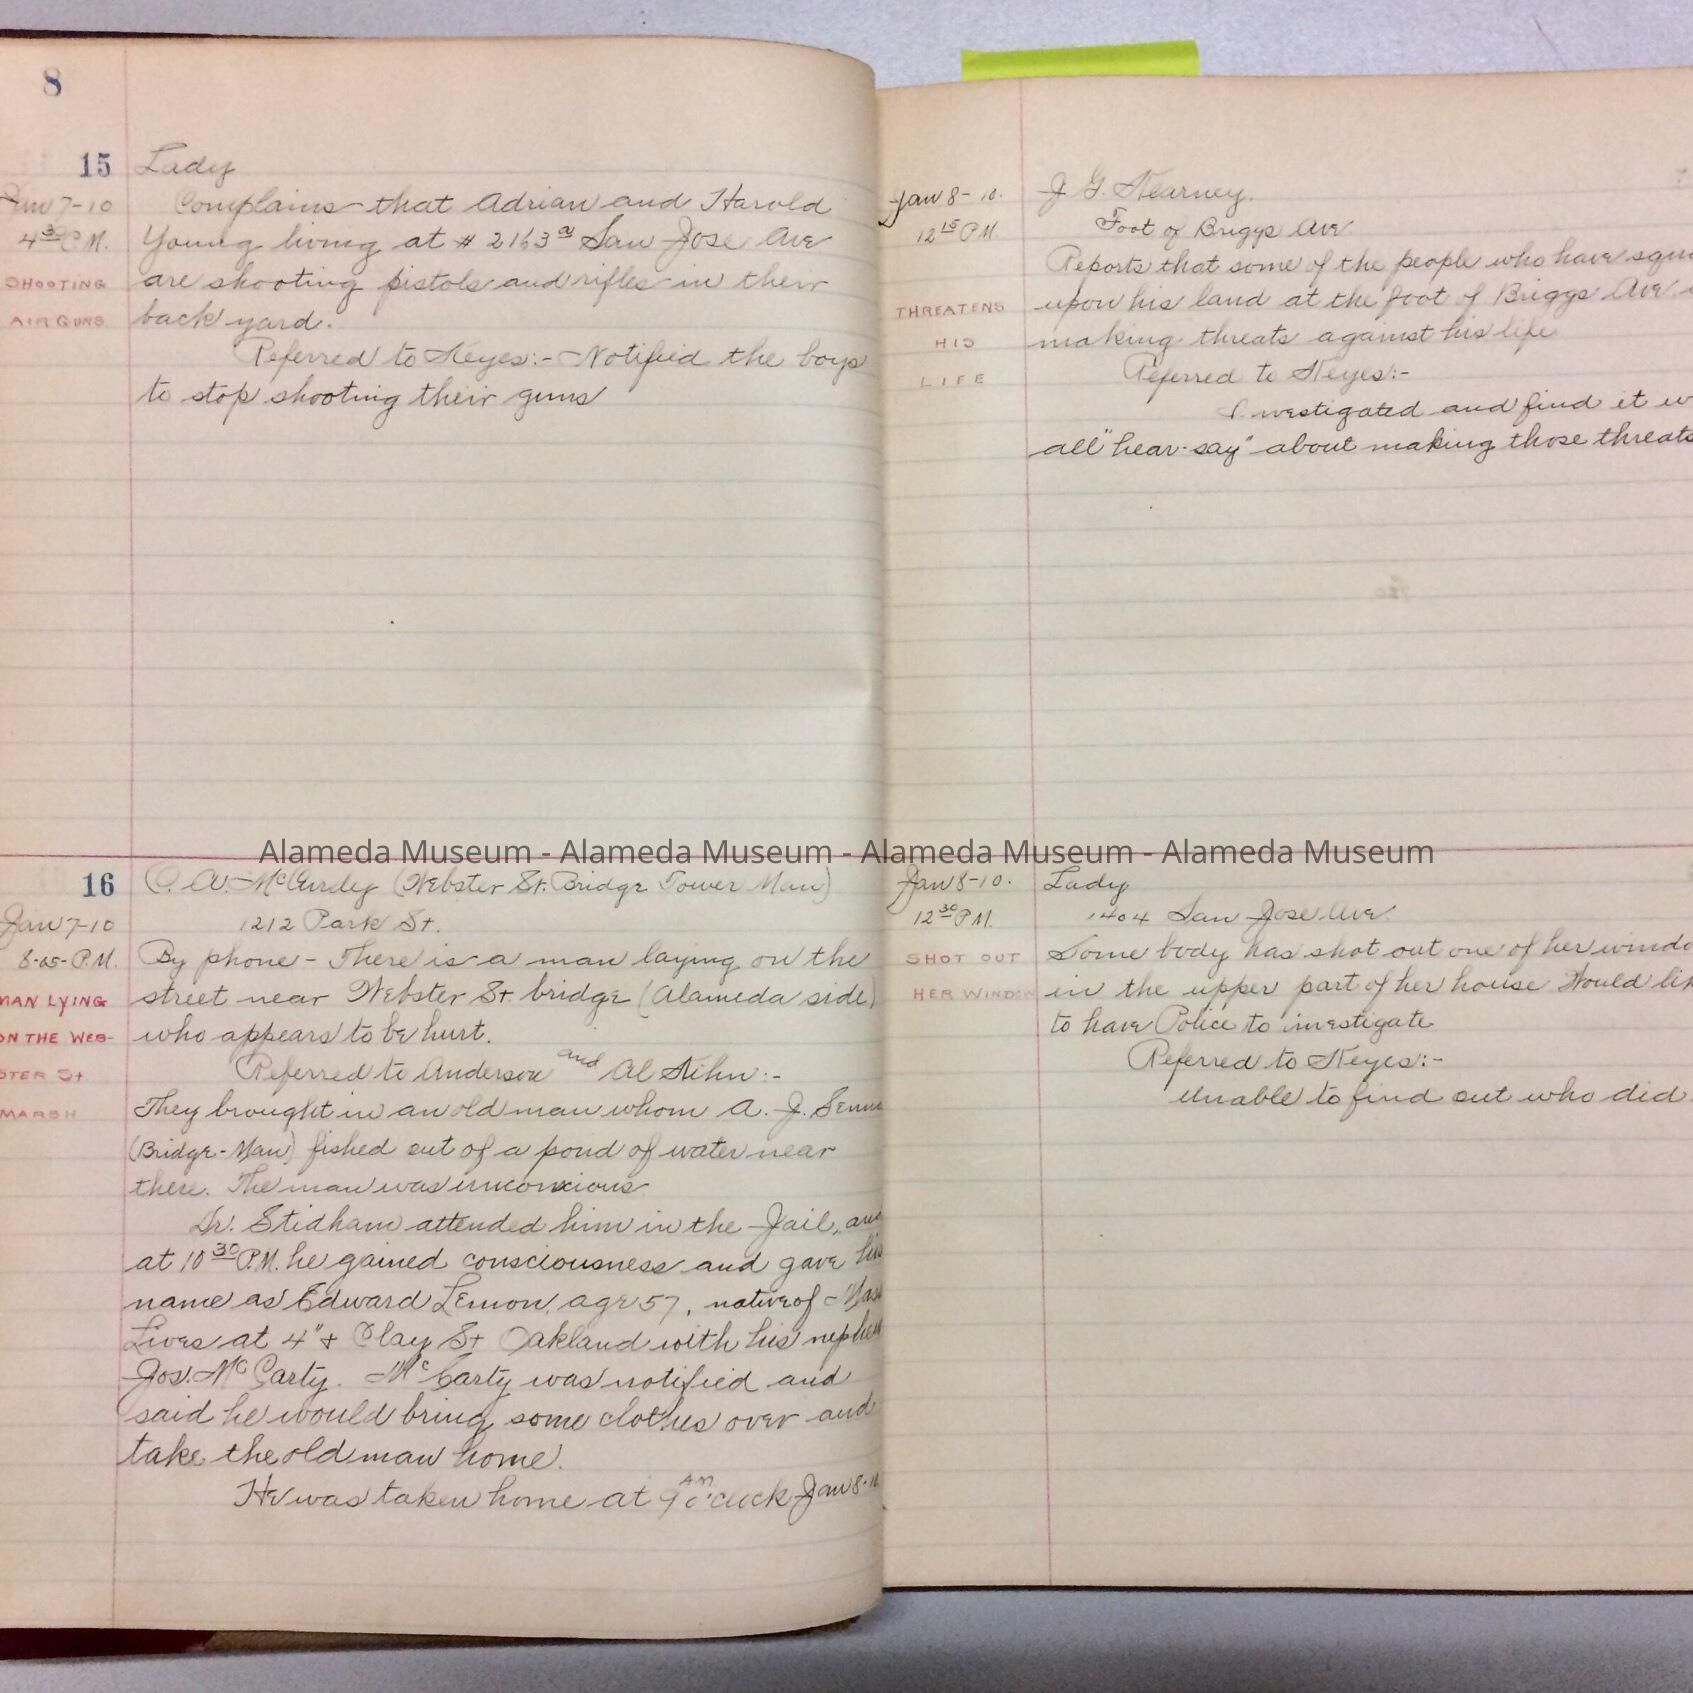 8
15 Lady
Jan 7-10 Complains that Adrian and Harold
4 30 P.M. Young living at # 2163 a San Jose Ave
SHOOTING are shooting pistols and rifles in their
AIR GUNS back yard.
Referred to Keyes:- Notified the boys
to stop shooting their guns
16 McCurdy (Webster St. Bridge Tower Man)
Jan 7-10 1212 Park St.
8-05-P.M. By phone - There is a man laying on the
MAN LYING street near Webster St. bridge (Alameda side)
ON THE WEB- who appears to be hurt.
STER St Referred to Anderson and Al Kihn:-
MARSH They brought in an old man whom A. J.
(Bridge-Man) fished out of a pond of water near
there. The man was unconscious
Dr. Stidham attended him in the Jail, and
at 10 30 P.M. he gained consciousness and gave his
name as Edward Lemon, age 57, native of Mass
Lives at 4" & Clay St Oakland with his nephew
Jos. McCarty. McCarty was notified and
said he would bring some clothes over and
take the old man home.
He was taken home at 9 A.M. o'clock Jan 8-10
Jan 8-10. J. G. Kearney.
12 15 P.M. Foot of Briggs Ave
Reports that some of the people who have squ
THREATENS upon his land at the foot of Briggs Ave.
HIS making threats against his life
LIFE Referred to Keyes:-
Investigated and find it w
all "hear-say" about making those threats
Jan 8-10. Lady
12 30 P.M. 1404 San Jose Ave.
SHOT OUT Some body has shot out one of her windo
HER WINDOW in the upper part of her house Would lik
to have Police to investigate
Referred to Keyes:-
Unable to find out who did
Alameda Museum - Alameda Museum - Alameda Museum - Alameda Museum